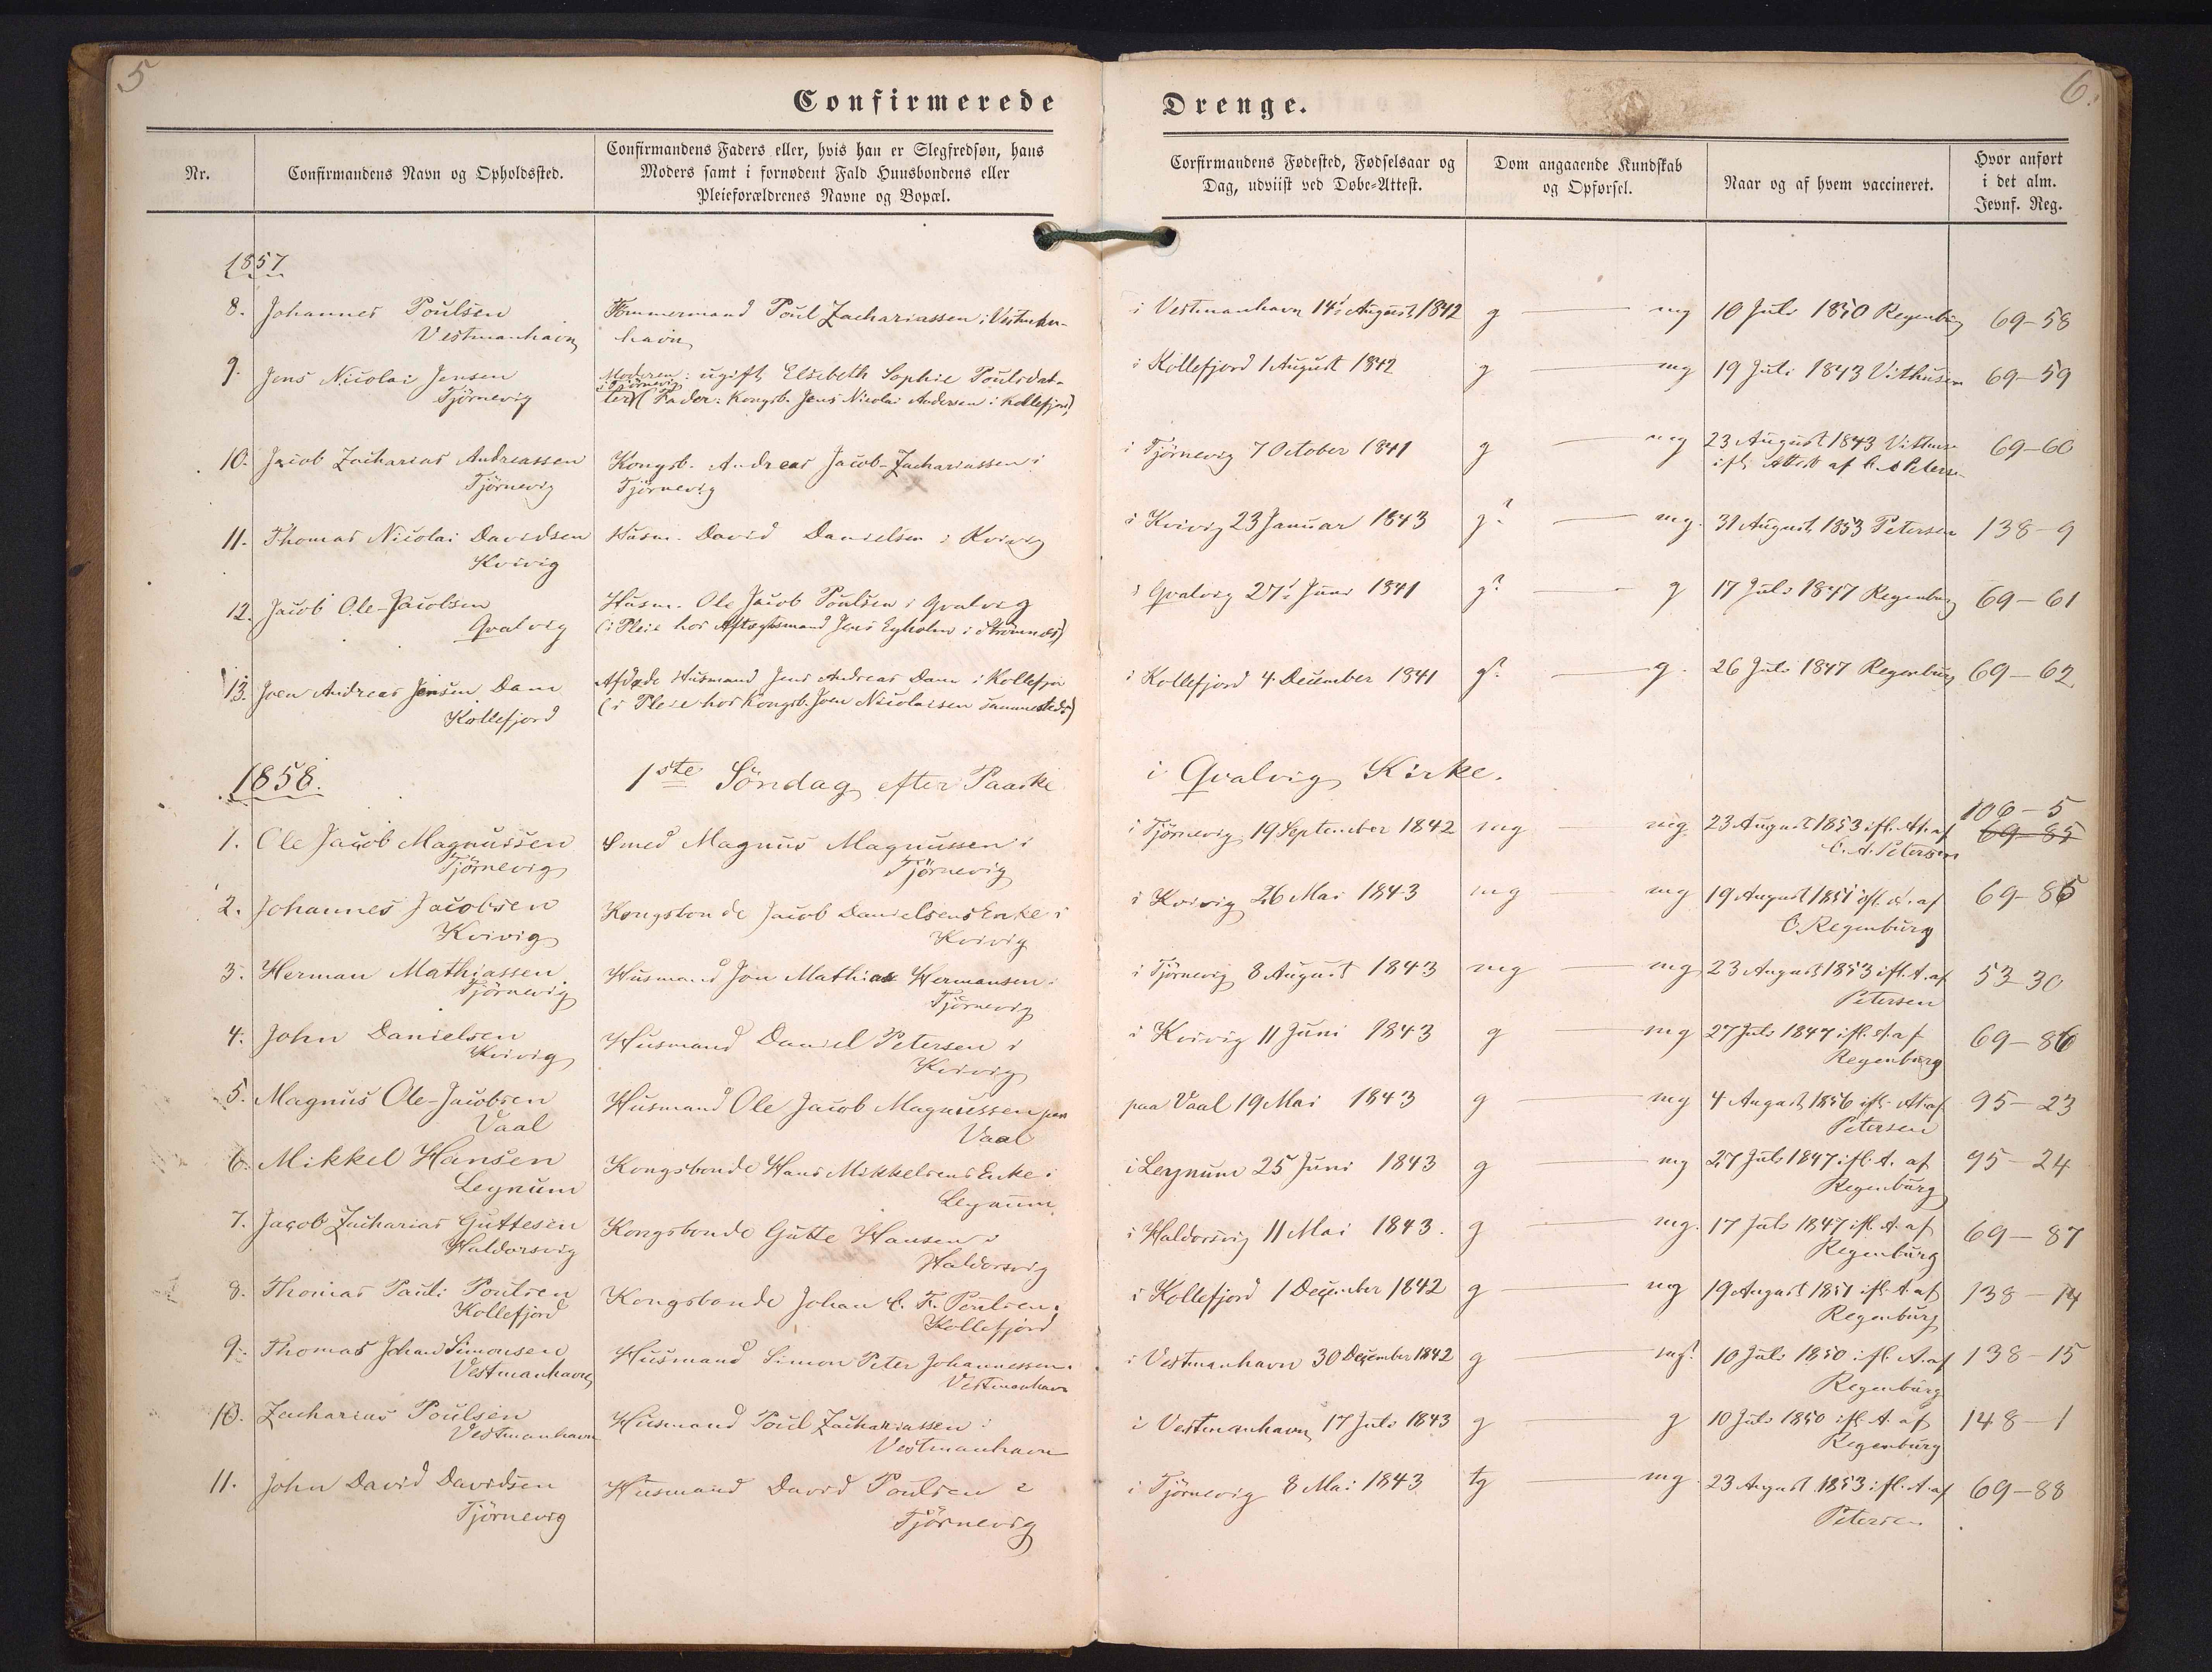 5
6.
Confirmerede Drenge.
Nr.
Confirmandens Navn og Opholdssted.
Confirmandens Faders eller, hvis han er Slegfredsøn, hans
Moders samt i fornødent Fald Huusbondens eller
Pleieforældrenes Navne og Bopæl.
Corfirmandens Fødested, Fødselsaar og
Dag, udviist ved Døbe-Attest.
Dom angaaende Kundskab
og Opførsel.
Naar og af hvem vaccineret.
Hvor anført
i det alm.
Jevnf. Reg.
1857
8. Johannes Poulsen Tømmermand Poul Zachariassen i Vestman- i Vestmanhavn 14 August 1842 g mg 10 Juli 1850 Regenburg 69-58
Vestmanhavn havn
9. Jens Nicolai Jensen Moderen: ugift Elsebeth Sophie Poulsdat- i Kollefjord 1 August 1842 g mg 19 Juli 1843 Vithusen 69-59
i Tjörnevig
Tjörnevig ter (Fader: Kongsb. Jens Nicolai Andersen i Kollefjord)
10. Jacob Zacharias Andreassen Kongsb. Andreas Jacob-Zachariassen i i Tjörnevig 7 October 1841 g mg 23 August 1843 Vithus- 69-60
Tjörnevig Tjörnevig ifl. Attest af C. A. Petersen
11. Thomas Nicolai Davidsen Husm. David Danielsen i Kvivig i Kvivig 23 Januar 1843 g? mg. 31 August 1853 Petersen 138-9
Kvivig
12. Jacob Ole-Jacobsen Husm. Ole Jacob Poulsen i Qvalvig i Qvalvig 27 Juni 1841 g? g 17 Juli 1847 Regenburg 69-61
Qvalvig (i Pleie hos Aftægtsmand Jens Egholm i Strömnæs)
13. Joen Andreas Jensen Dam Afdøde Husmand Jens Andreas Dam i Kollefjor i Kollefjord 4 December 1841 g? g. 26 Juli 1847 Regenburg 69-62
Kollefjord (i Pleie hos Kongsb. Joen Nicolaisen sammesteds)
1858. 1ste Söndag efter Paaske i Qvalvig Kirke.
106-5
1. Ole Jacob Magnussen Smed Magnus Magnussen i i Tjörnevig 19 September 1842 mg mg. 23 August 1853 ifl. At. af 69-85
Tjörnevig Tjörnevig C. A. Petersen
2. Johannes Jacobsen Kongsbonde Jacob Danielsens Enke i i Kvivig 26 Mai 1843 mg mg 19 August 1851 ifl. A. af 69-85
Kvivig Kvivig C. Regenburg
3. Herman Mathiassen Husmand Jon Mathias Hermansen i i Tjörnevig 8 August 1843 mg mg 23 August 1853 ifl. A. af 53-30
Tjörnevig Tjörnevig Petersen
4. John Danielsen Husmand Daniel Petersen i i Kvivig 11 Juni 1843 g mg 27 Juli 1847 ifl. A. af 69-86
Kvivig Kvivig Regenburg
5. Magnus Ole-Jacobsen Husmand Ole Jacob Magnussen paa paa Vaal 19 Mai 1843 g mg 4 August 1856 ifl. At. af 95-23
Vaal Vaal Petersen
6. Mikkel Hansen Kongsbonde Hans Mikkelsens Enke i i Leynum 25 Juni 1843 g mg 27 Juli 1847 ifl. A. af 95-24
Leynum Leynum Regenburg
7. Jacob Zacharias Guttesen Kongsbonde Gutte Hansen i i Haldorsvig 11 Mai 1843. g mg. 17 Juli 1847 ifl. A. af 69-87
Haldorsvig Haldorsvig Regenburg
8. Thomas Pauli Poulsen Kongsbonde Johan C. F. Poulsen i i Kollefjord 1 December 1842 g mg 19 August 1851 ifl. A. af 138-14
Kollefjord Kollefjord Regenburg
9. Thomas Johan Simonsen Husmand Simon Peter Johannessen i i Vestmanhavn 30 December 1842 g mg? 10 Juli 1850 ifl. A. af 138-15
Vestmanhavn Vestmanhavn Regenburg
10. Zacharias Poulsen Husmand Poul Zachariassen i i Vestmanhavn 17 Juli 1843 g g 10 Juli 1850 ifl. A. af 148-1
Vestmanhavn Vestmanhavn Regenburg
11. John David Davidsen Husmand David Poulsen i i Tjörnevig 8 Mai 1843 tg mg. 23 August 1853 ifl. A. af 69-88
Tjörnevig Tjörnevig Petersen